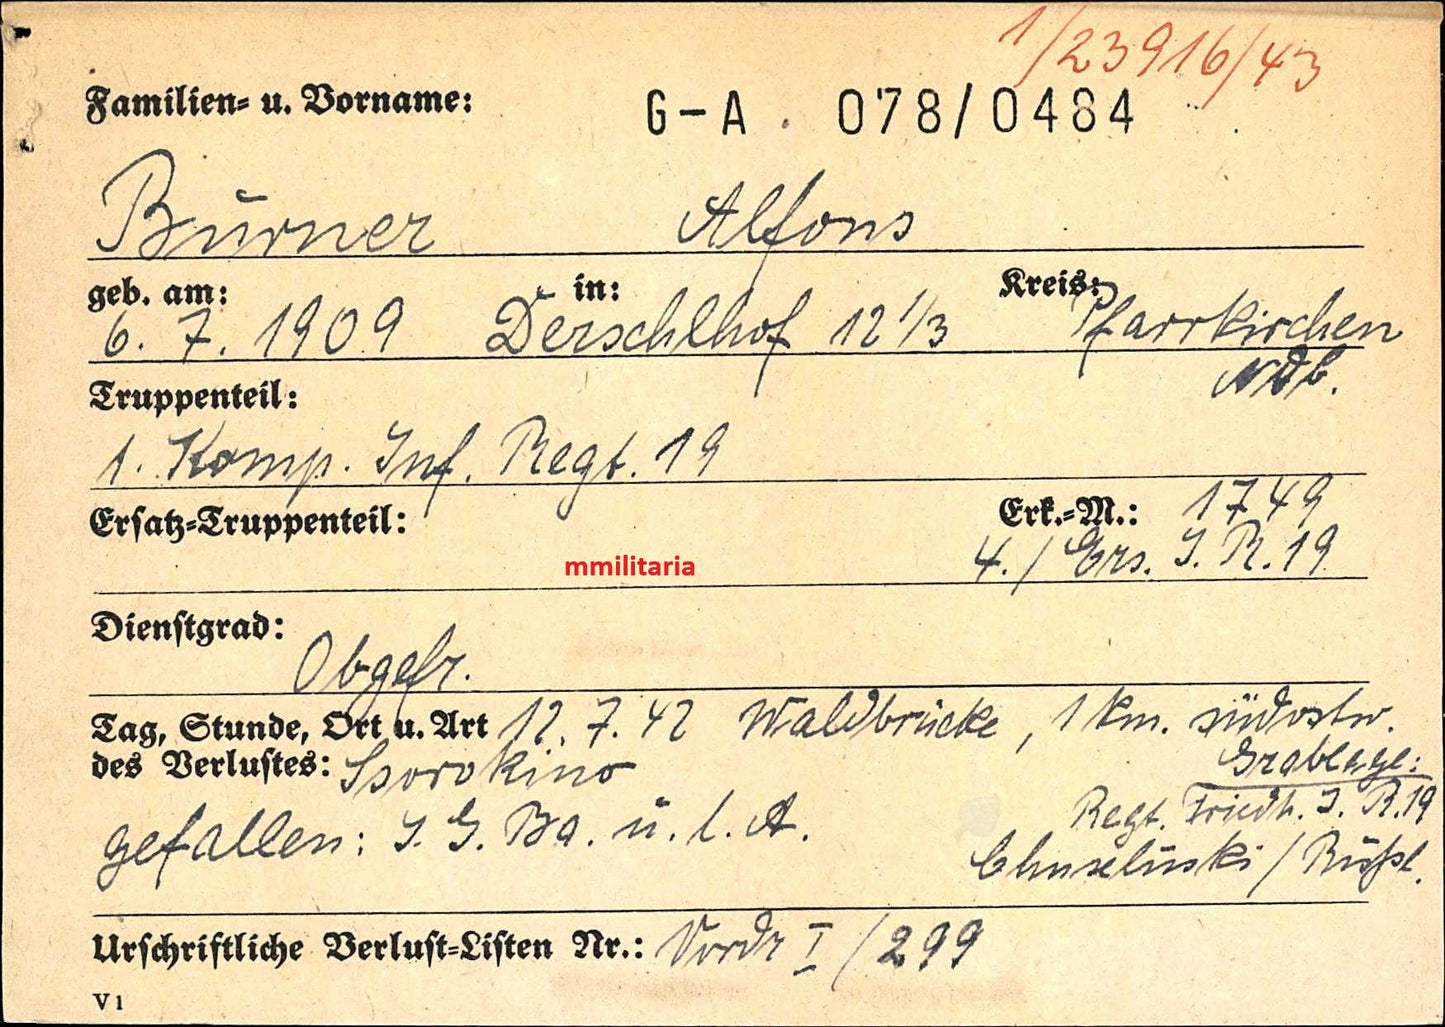 1/23916/43
Familien- u. Vorname:
G-A 078/0484
Burner Alfons
geb. am: in: Kreis:
6. 7. 1909 Derschlhof 12 1/3 Pfarrkirchen
Ndb.
Truppenteil:
1. Komp. Inf. Regt. 19
Ersatz-Truppenteil: Erk.-M.: 1749
4./Ers. I. R. 19
mmilitaria
Dienstgrad:
Obgefr.
Tag, Stunde, Ort u. Art 12. 7. 42 Waldbrücke, 1 km. südostw.
des Verlustes: Ssorokino
Grablage:
Regt. Friedh. I. R. 19
gefallen: I. G. Ba. u. l. A.
/ Rußl.
Urschriftliche Verlust-Listen Nr.: Vordr I / 299
V 1